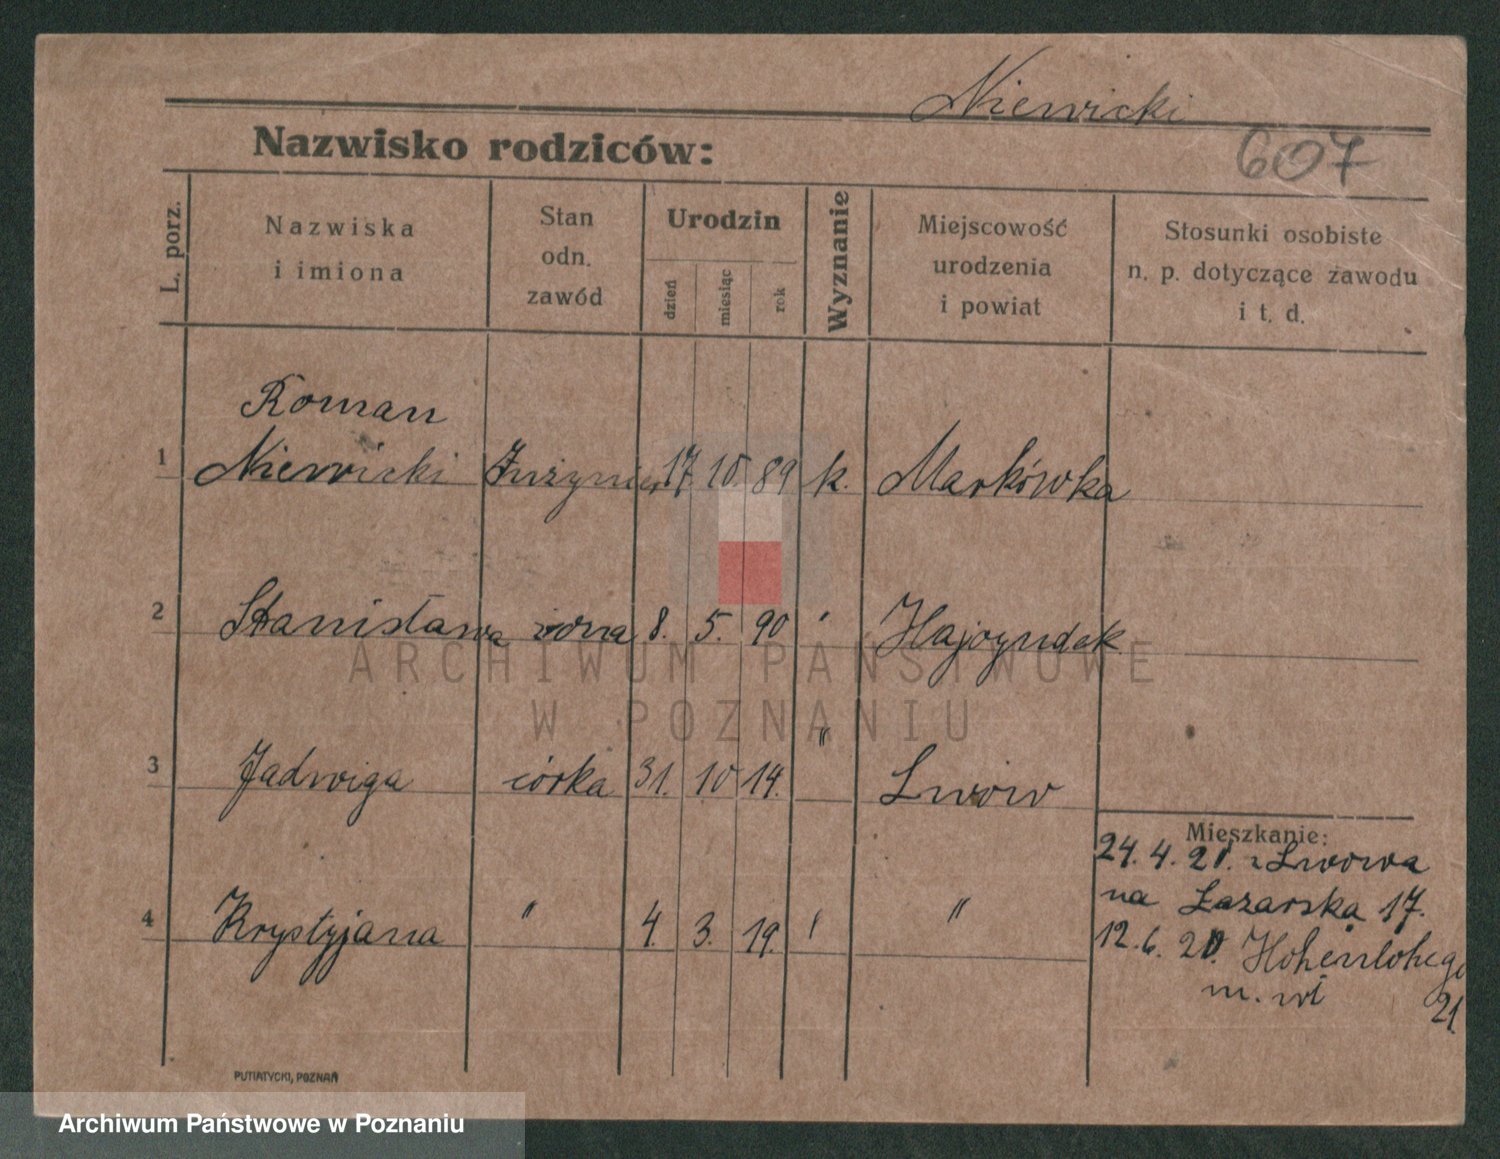 Niewicki
Nazwisko rodziców:
607
L. porz.
Nazwiska
i imiona
Stan
odn.
zawód
Urodzin
dzień
miesiąc
rok
Wyznanie
Miejscowość
urodzenia
i powiat
Stosunki osobiste
n. p. dotyczące zawodu
i t. d.
Roman
1 Niewicki Inżynier 17 10 89 k. Markówka
2 Stanisława żona 8. 5. 90 "
ARCHIWUM PAŃSTWOWE
W POZNANIU
3 Jadwiga córka 31. 10 14. " Lwów
Mieszkanie:
24. 4. 21. z Lwowa
na Łazarska 17.
4 Krystyjana " 4. 3. 19. " "
12. 6. 21. Hohenlohego
m. wł 21
PUTIATYCKI, POZNAŃ
Archiwum Państwowe w Poznaniu